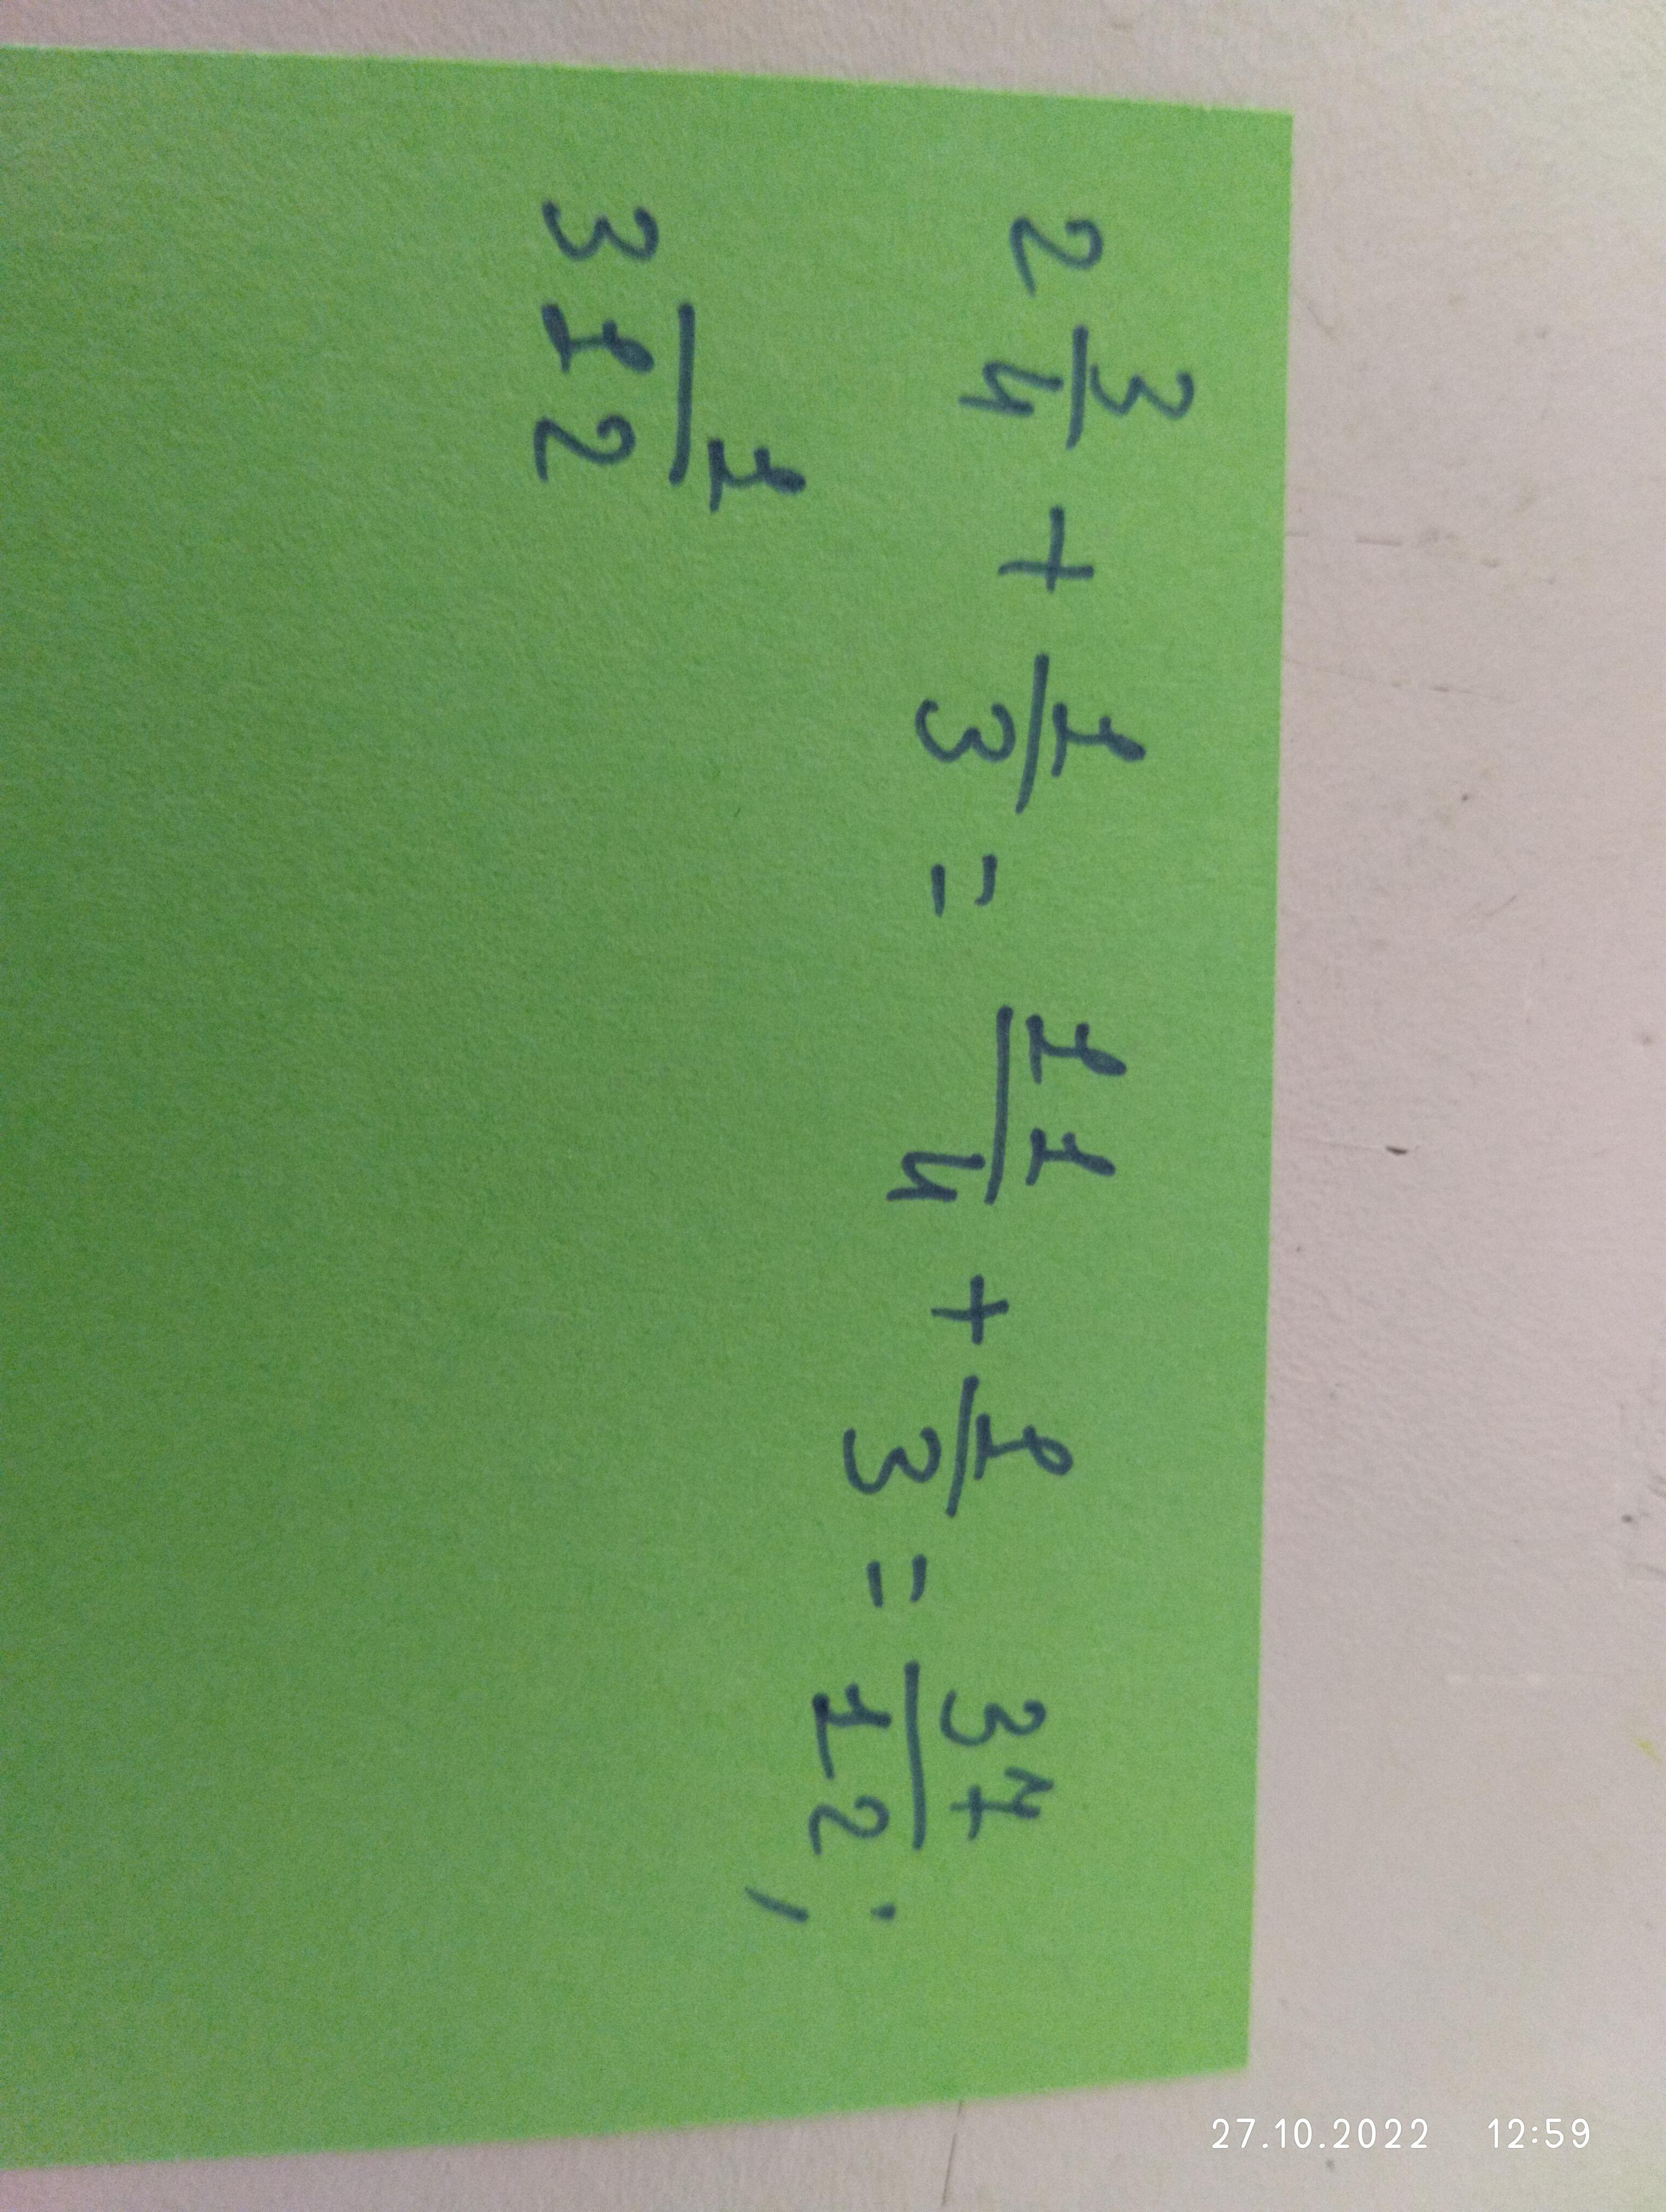 2 3/4 + 1/3 = 11/4 + 1/3 = 37/12;
3 1/12
27.10.2022 12:59